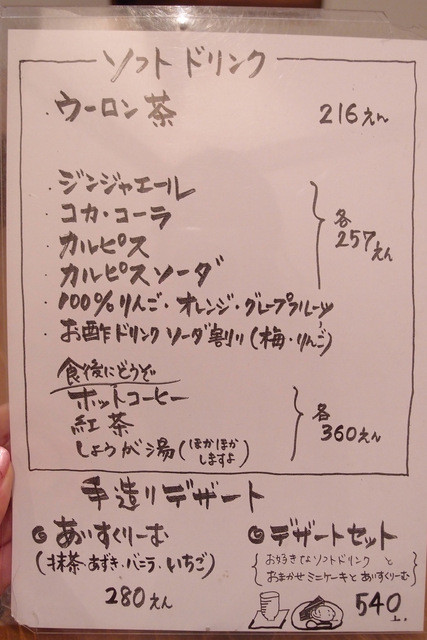 ソフトドリンク
・ウーロン茶 216えん
・ジンジャエール
・コカ・コーラ
・カルピス
・カルピスソーダ
・100%りんご・オレンジ・グレープフルーツ
・お酢ドリンク ソーダ割り(梅・りんご)
各257えん
食後にどうぞ
ホットコーヒー
紅茶
しょうが湯(ぽかぽかしますよ)
各360えん
手造りデザート
◎あいすくりーむ
(抹茶・あずき・バニラ・いちご)
280えん
◎デザートセット
お好きなソフトドリンクと
おまかせミニケーキとあいすくりーむ
540